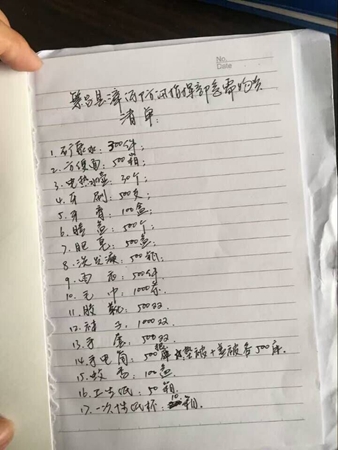 No.
Date
繁昌县漳河防汛指挥部急需物资
清单:
1. 矿泉水: 300件;
2. 方便面: 500箱;
3. 电热水壶: 30个;
4. 牙刷: 500支;
5. 牙膏: 100盒;
6. 脸盆: 500个;
7. 肥皂: 500盒;
8. 洗发液: 500瓶;
9. 雨衣: 500件
10. 毛巾: 1000条
11. 胶靴: 500双
12. 袜子: 1000双
13. 手套: 500双
14. 手电筒: 500 垫被+盖被各500床.
15. 蚊香: 100盒
16. 卫生纸: 50箱
17. 一次性纸杯: 10箱.